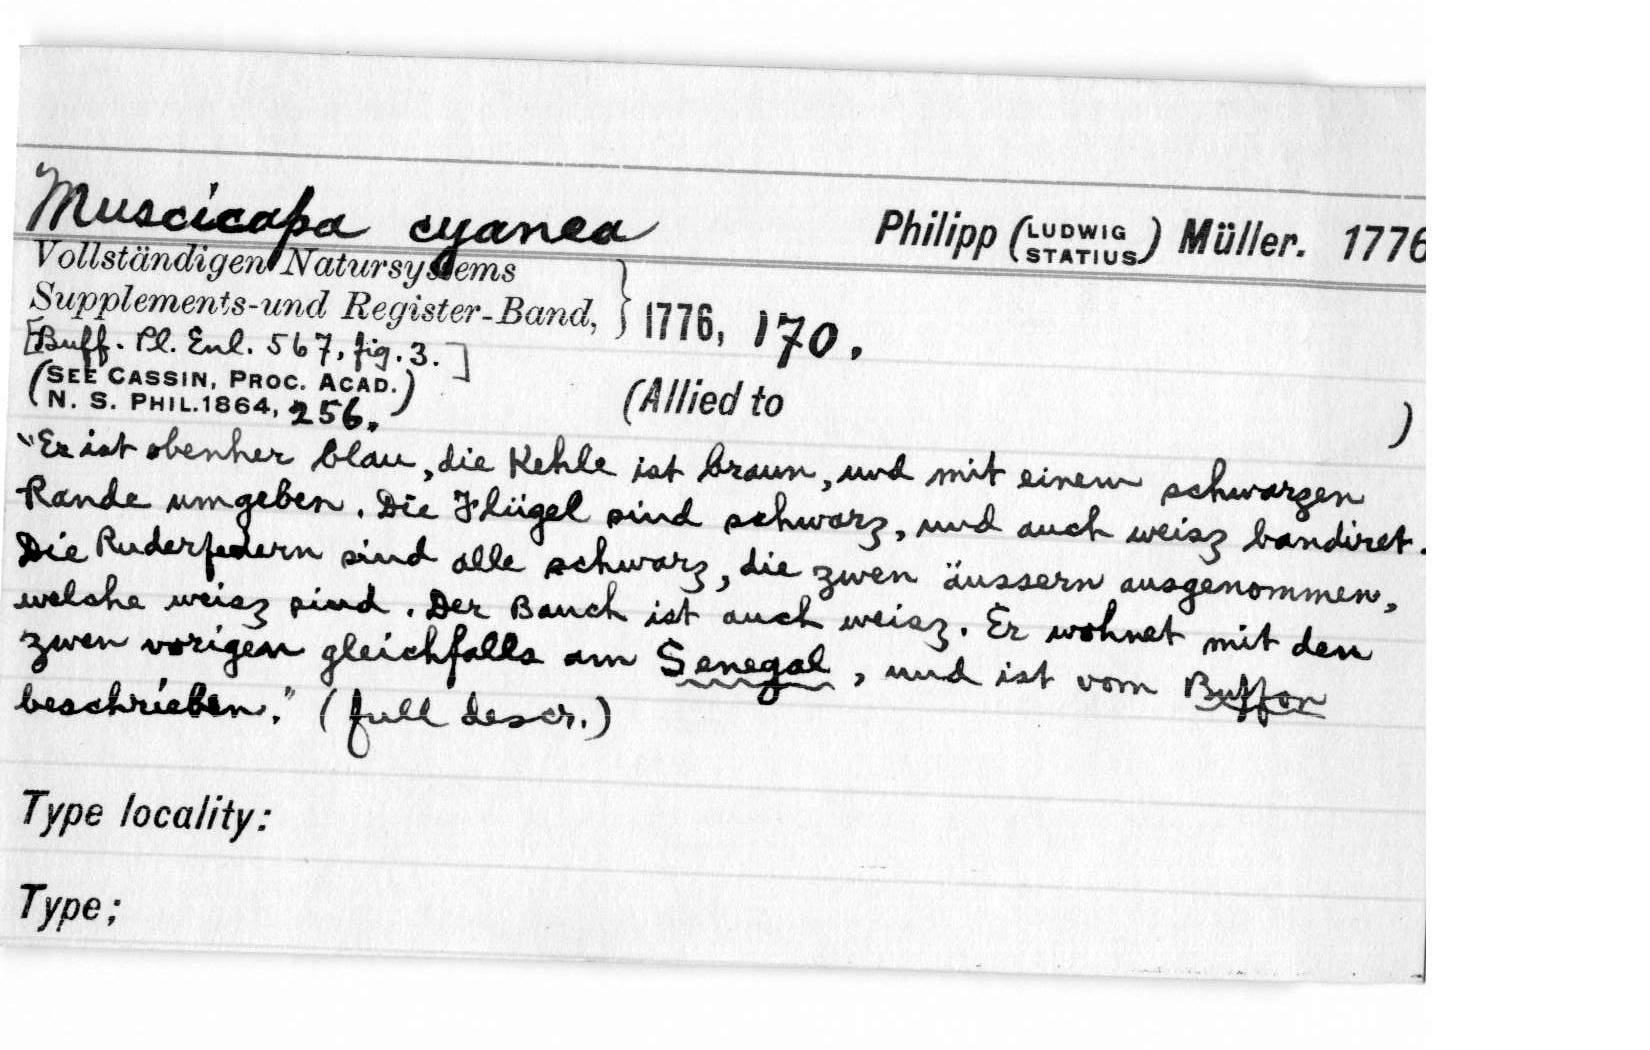 Muscicapa cyanea Philipp (LUDWIG STATIUS) Müller. 1776
Vollständigen Natursystems
Supplements-und Register-Band, } 1776, 170.
[Buff. Pl. Enl. 567, fig. 3.]
(SEE CASSIN, PROC. ACAD.
N. S. PHIL. 1864, 256.) (Allied to )
"Er ist obenher blau, die Kehle ist braun, und mit einem schwarzen
Rande umgeben. Die Flügel sind schwarz, und auch weisz bandiret.
Die Ruderfedern sind alle schwarz, die zwen äussern ausgenommen,
welche weisz sind. Der Bauch ist auch weisz. Er wohnet mit den
zwen vorigen gleichfalls am Senegal, und ist vom Buffon
beschrieben." (full descr.)
Type locality:
Type;